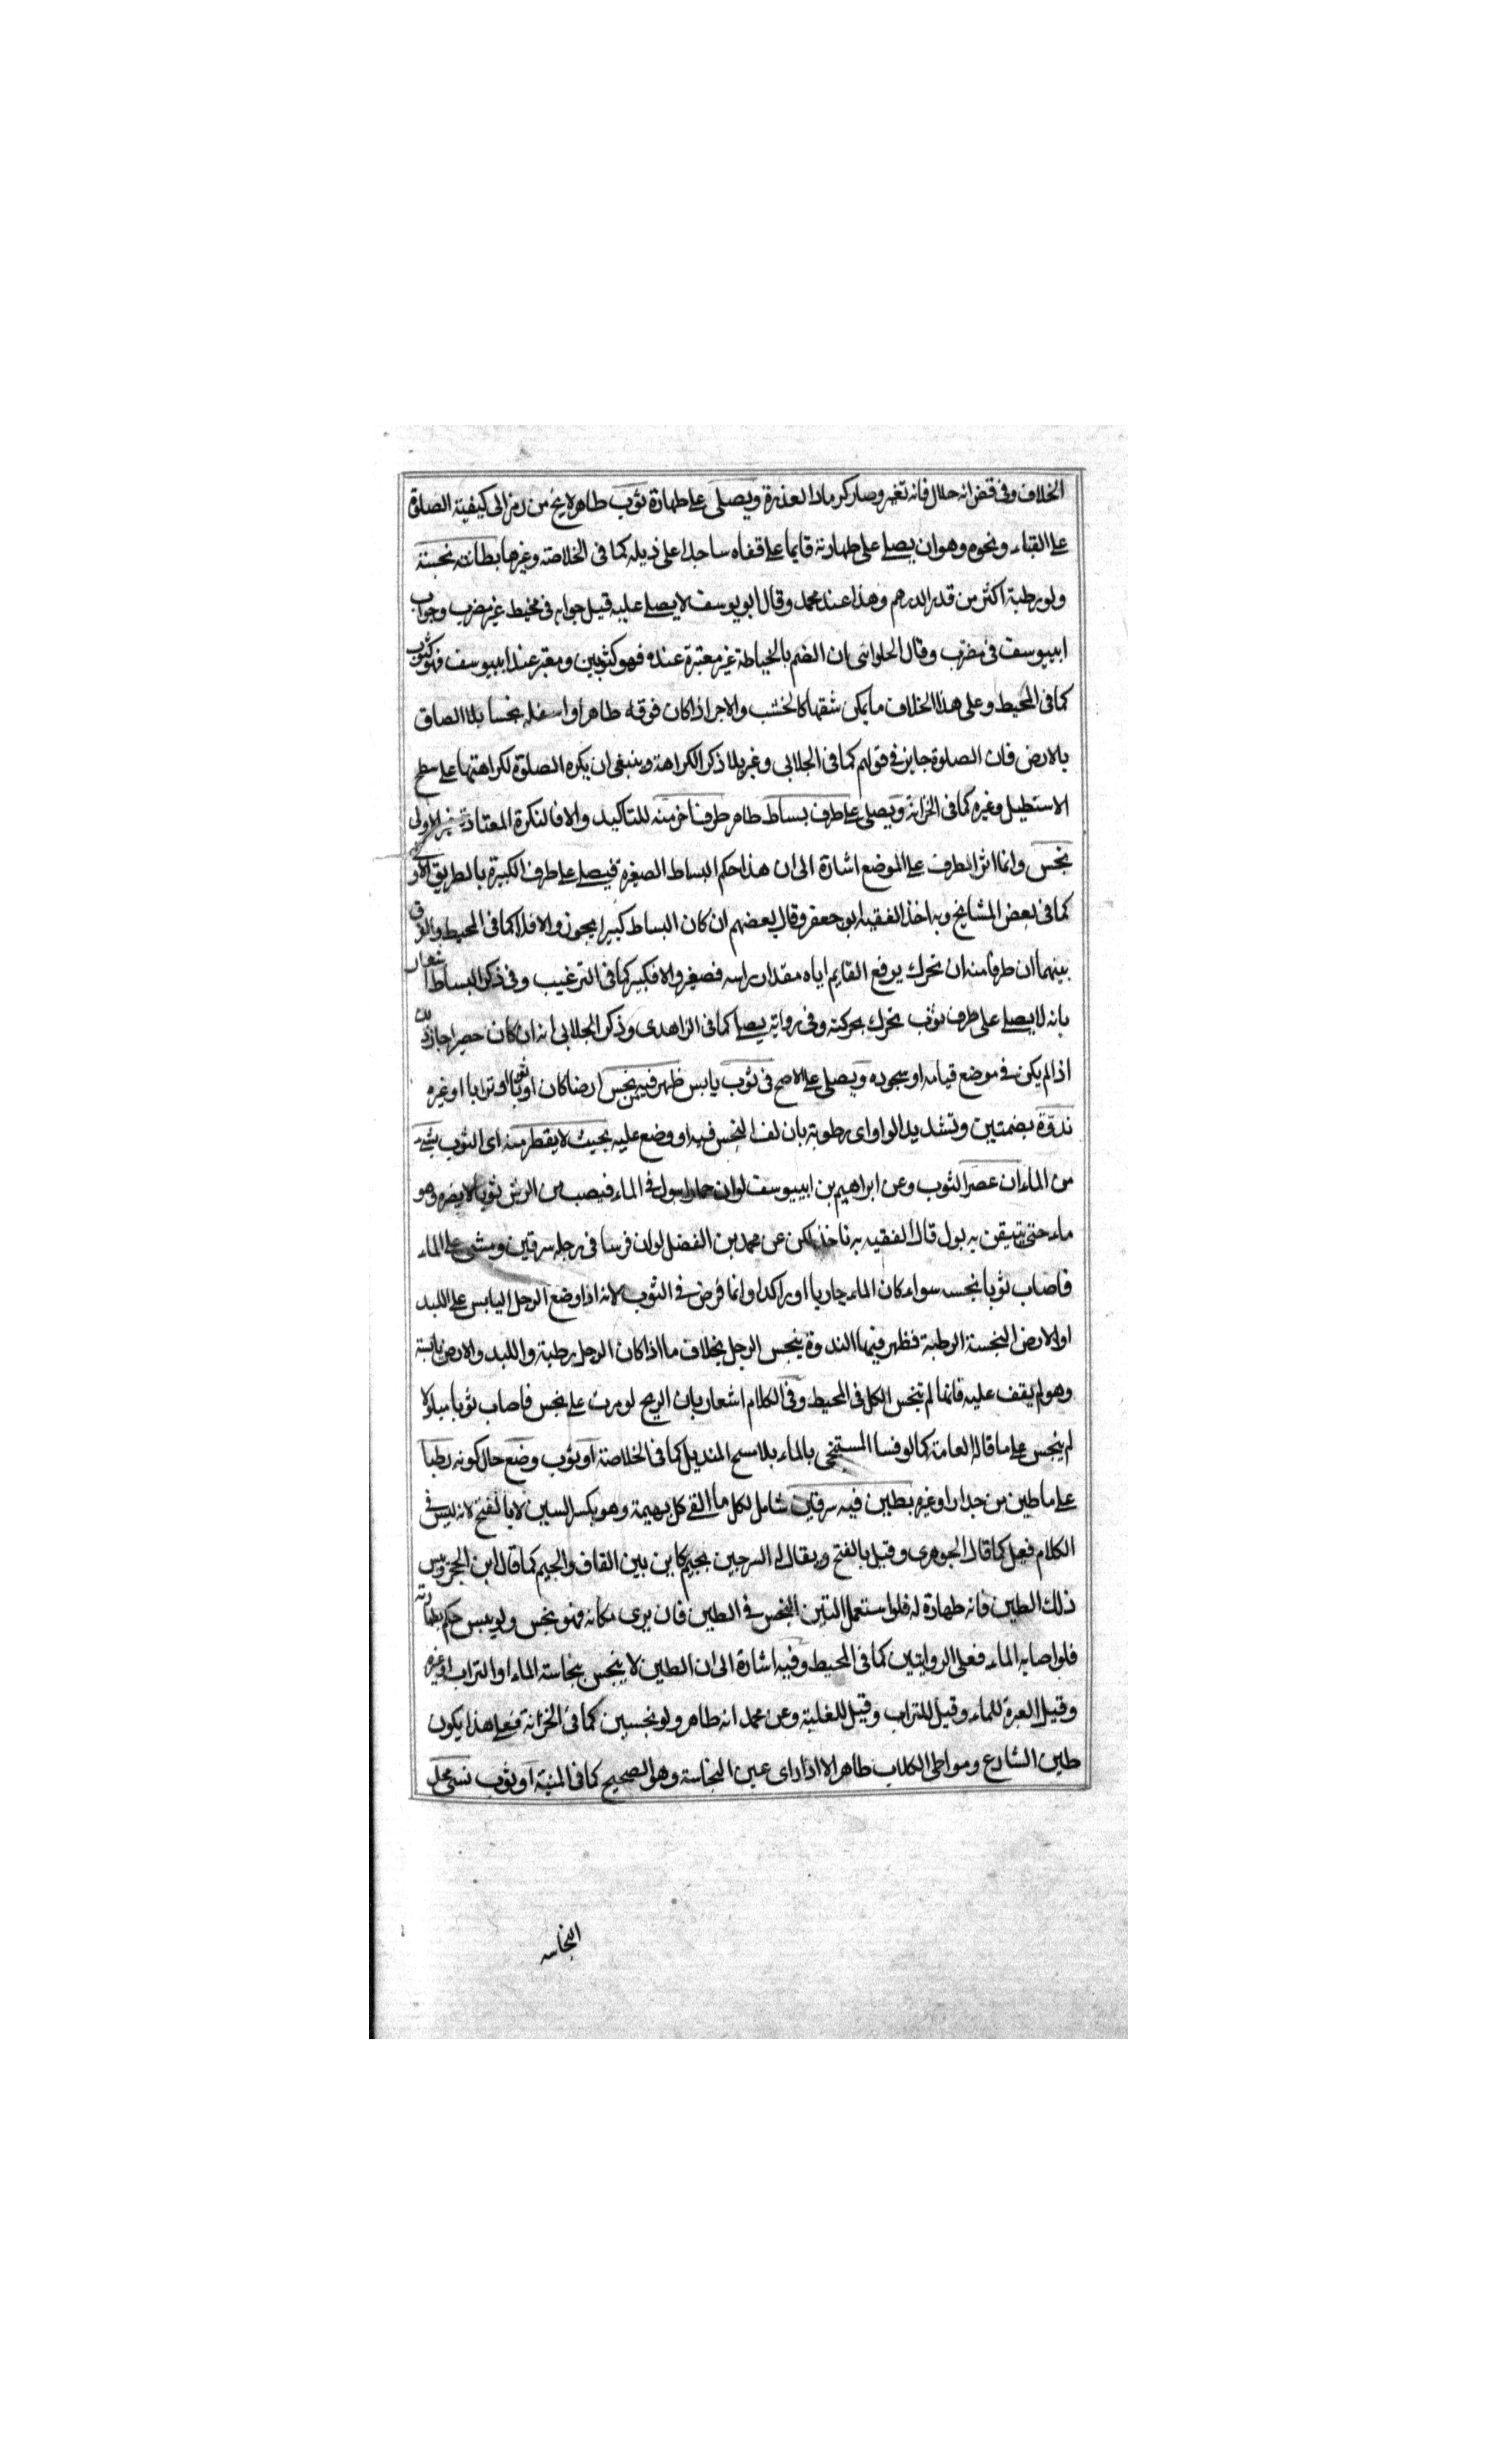 الخلاف وفى قضن انه حلال فانه تغير وصار كرماد العذرة ويصلى على طهارة ثوب طاهر لايخ من رمز الى كيفية الصلوة
على القباء ونحوه وهو ان يصلى على طهارته قايما على قفاه ساجدا على ذيله كما فى الخلاصة وغيرها بطانته نجسة
ولو رطبة اكثر من قدر الدرهم وهذا عند محمد وقال ابويوسف لا يصلى عليه قيل جوابه فى مخيط غير مضرب وجواب
ابييوسف فى مضرّب وقال الحلوانى ان الضم بالخياطة غير معتبرة عنده فهو كثوبين ومعتبر عند ابييوسف فهو كثوب
كما فى المحيط وعلى هذا الخلاف ما يمكن شقها كالخشب والاجر اذا كان فوقه طاهرا واسفله نجسا بلا الصاق
بالارض فان الصلوة جايز فى قولهم كما فى الجلابى وغيره بلا ذكر الكراهة وينبغى ان يكره الصلوة لكراهتها على سطح
الاسطبل وغيره كما فى الخزانة ويصلى على طرف بساط طاهر طرف اخر منه للتاكيد والا فالنكرة المعتادة غير الاولى
نجس وانما اثر الطرف على الموضع اشارة الى ان هذا حكم البساط الصغيرة فيصلى على طرف الكبيرة بالطريق الاو
كما فى بعض المشايخ وبه اخذ الفقيه ابو جعفر وقال بعضهم ان كان البساط كبيرا يجوز والا فلا كما فى المحيط والفرق
بينهما ان طرفا منه ان تحرك يرفع القايم اياه مقدار راسه فصغير والا فكبير كما فى الترغيب وفى ذكر البساط اشعار
بانه لا يصلى على طرف ثوب تحرك بحركته وفى رواية يصلى كما فى الزاهدى وذكر الجلابى انه ان كان حصيرا جاز ذلك
اذا لم يكن فى موضع قيامه او سجوده ويصلى على الاصح فى ثوب يابس ظهر فيه من نجس ارضا كان او ثوبا او ترابا او غيره
ندوّة بضمتين وتشديد الواو اى رطوبة بان لف النجس فيه او وضع عليه بحيث لا يقطر منه اى الثوب شىء
من الماء ان عصر الثوب وعن ابراهيم بن ابييوسف لو ان حمارا يبول فى الماء فيصب من الرش ثوبا لا يضره وهو
ماء حتى يتيقن به بول قال الفقيه به ناخذ لكن عن محمد بن الفضل لو ان فرسا فى رجله سرقين ويمشى على الماء
فاصاب ثوبا نجسه سواء كان الماء جاريا او راكدا وانما فرض فى الثوب لانه اذا وضع الرجل اليابس على اللبد
او الارض النجسة الرطبة فظهر فيها الندوة ينجس الرجل بخلاف ما اذا كان الرجل رطبة واللبد والارض يابسة
وهو لم يقف عليه فانما لم تنجس الكل فى المحيط وفى الكلام اشعار بان الريح لو مرت على نجس فاصاب ثوبا مبلولا
لم ينجس على ما قاله العامة كما لو فسا المستنجى بالماء بلا مسح المنديل كما فى الخلاصة او ثوب وضع حال كونه رطبا
على ما طين من جدار او غيره بطين فيه سرقين شامل لكل ما القى كل بهيمة وهو بكسر السين لا بالفتح لانه ليس فى
الكلام فعيل كما قال الجوهرى وقيل بالفتح ويقال له السرجين بجيم كاين بين القاف والجيم كما قال ابن الحجر ويبس
ذلك الطين فانه طهارة له فلو استعمل التبن النجس فى الطين فان يرى مكانه فهو نجس ولو يبس حكم بطهارته
فلو اصابه الماء فعلى الروايتين كما فى المحيط وفيه اشارة الى ان الطين لا ينجس بنجاسة الماء او التراب او غيره
وقيل العبرة للماء وقيل للتراب وقيل للغلبة وعن محمد انه طاهر ولو نجسين كما فى الخزانة فعلى هذا يكون
طين الشارع ومواطى الكلاب طاهرا الا اذا راى عين النجاسة وهو الصحيح كما فى المنية او ثوب نسى محل
النجاسه